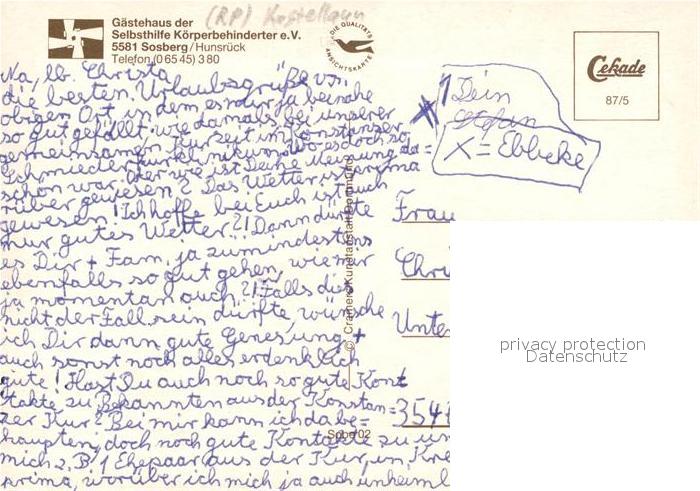 (RP) Kastellaun
Gästehaus der
Selbsthilfe Körperbehinderter e.V.
5581 Sosberg/Hunsrück
Telefon (0 65 45) 3 80
DIE QUALITÄTS
ANSICHTSKARTE
Cekade
87/5
Na, lb. Christa
die besten Urlaubsgrüße von
obigen Ort in dem es mir ja beinahe
so gut gefällt wie damals bei unserer
gemeinsamen Kurzeit im Konstanzer
Schmieder Kurklinikum wo es doch so
schön war, Oder wie ist Deine Meinung da=
rüber gewesen? Das Wetter ist prima
gewesen! Ich hoffe, bei Euch ist auch
nur gutes Wetter?! Dann dürfte
es Dir + Fam. ja zumindestens
ebenfalls so gut gehen, wie mir
ja momentan auch?! Falls dies
nicht der Fall sein dürfte, wünsche
ich Dir dann gute Genesung +
auch sonst noch alles erdenklich
gute! Hast Du auch noch so gute Kont
takte zu Bekannten aus der Konstan=
zer Kur? Bei mir kann ich da be=
haupten, doch noch gute Kontakte zu
mich z. B. 1 Ehepaar aus der Kur, in
prima, worüber ich mich ja auch unheiml
* 1 Dein
Stefan
X = Ebbeke
Frau
Chri
Unte
354
© Cramers Kunstanstalt Dortmund
So 02
privacy protection
Datenschutz